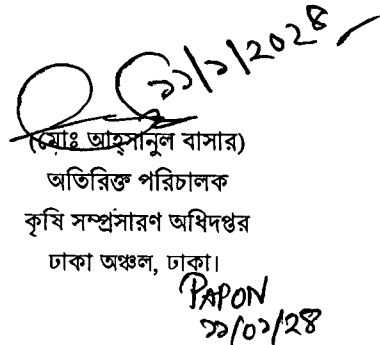 ১১/১/২০২৪
(মোঃ আহ্সানুল বাসার)
অতিরিক্ত পরিচালক
কৃষি সম্প্রসারণ অধিদপ্তর
ঢাকা অঞ্চল, ঢাকা।
PAPON
১১/০১/২৪